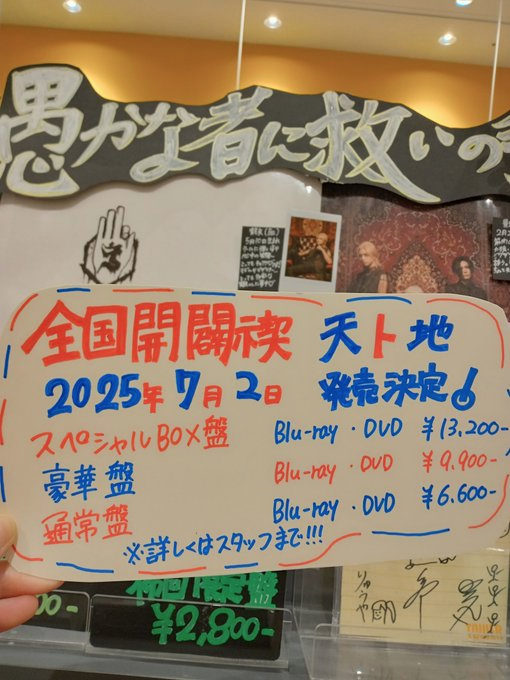 愚かな者に救いの
全国開闢禊 天ト地
2025年7月2日 発売決定
スペシャルBOX盤 Blu-ray・DVD ¥13,200-
豪華盤 Blu-ray・DVD ¥9,900-
通常盤 Blu-ray・DVD ¥6,600-
※詳しくはスタッフまで!!!
初回限定盤
¥2,800-